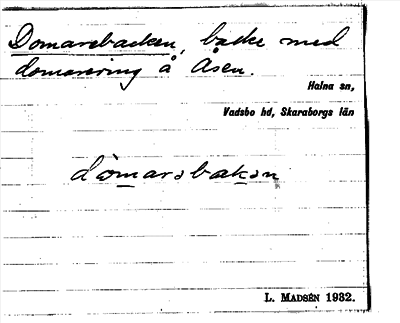 Domarebacken, backe med
domarering å Åsen.
Halna sn,
Vadsbo hd, Skaraborgs län
dòmarəbakən
L. MADSÉN 1932.